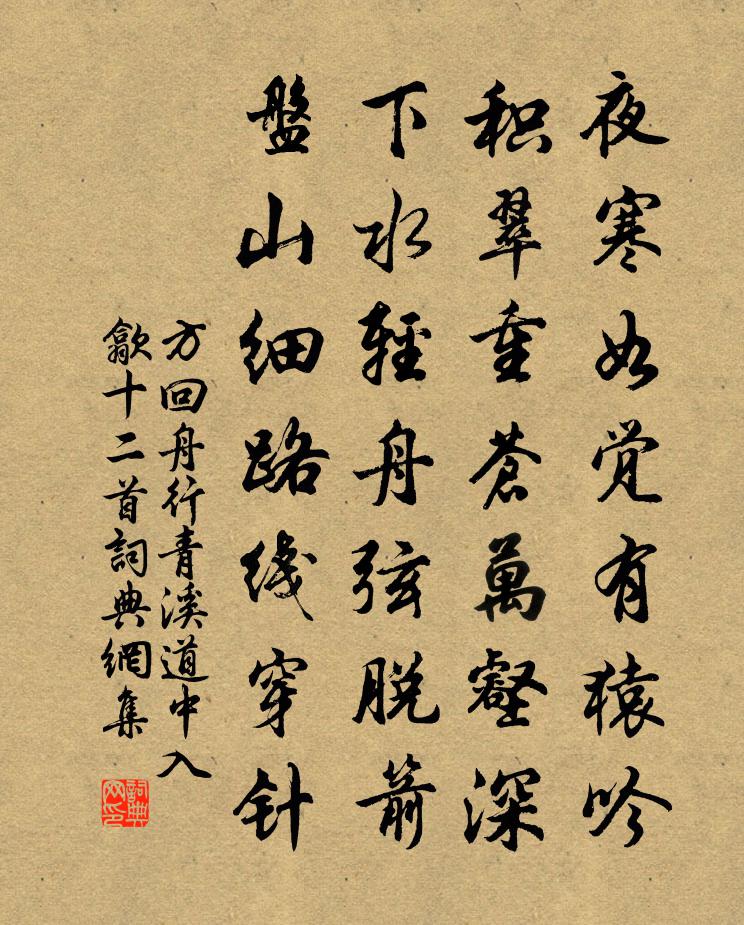 夜寒如觉有猿吟
积翠重苍萬壑深
下水輕舟弦脱箭
盤山细路线穿针
方回舟行青溪道中入
歙十二首詞典網集
詞典网印